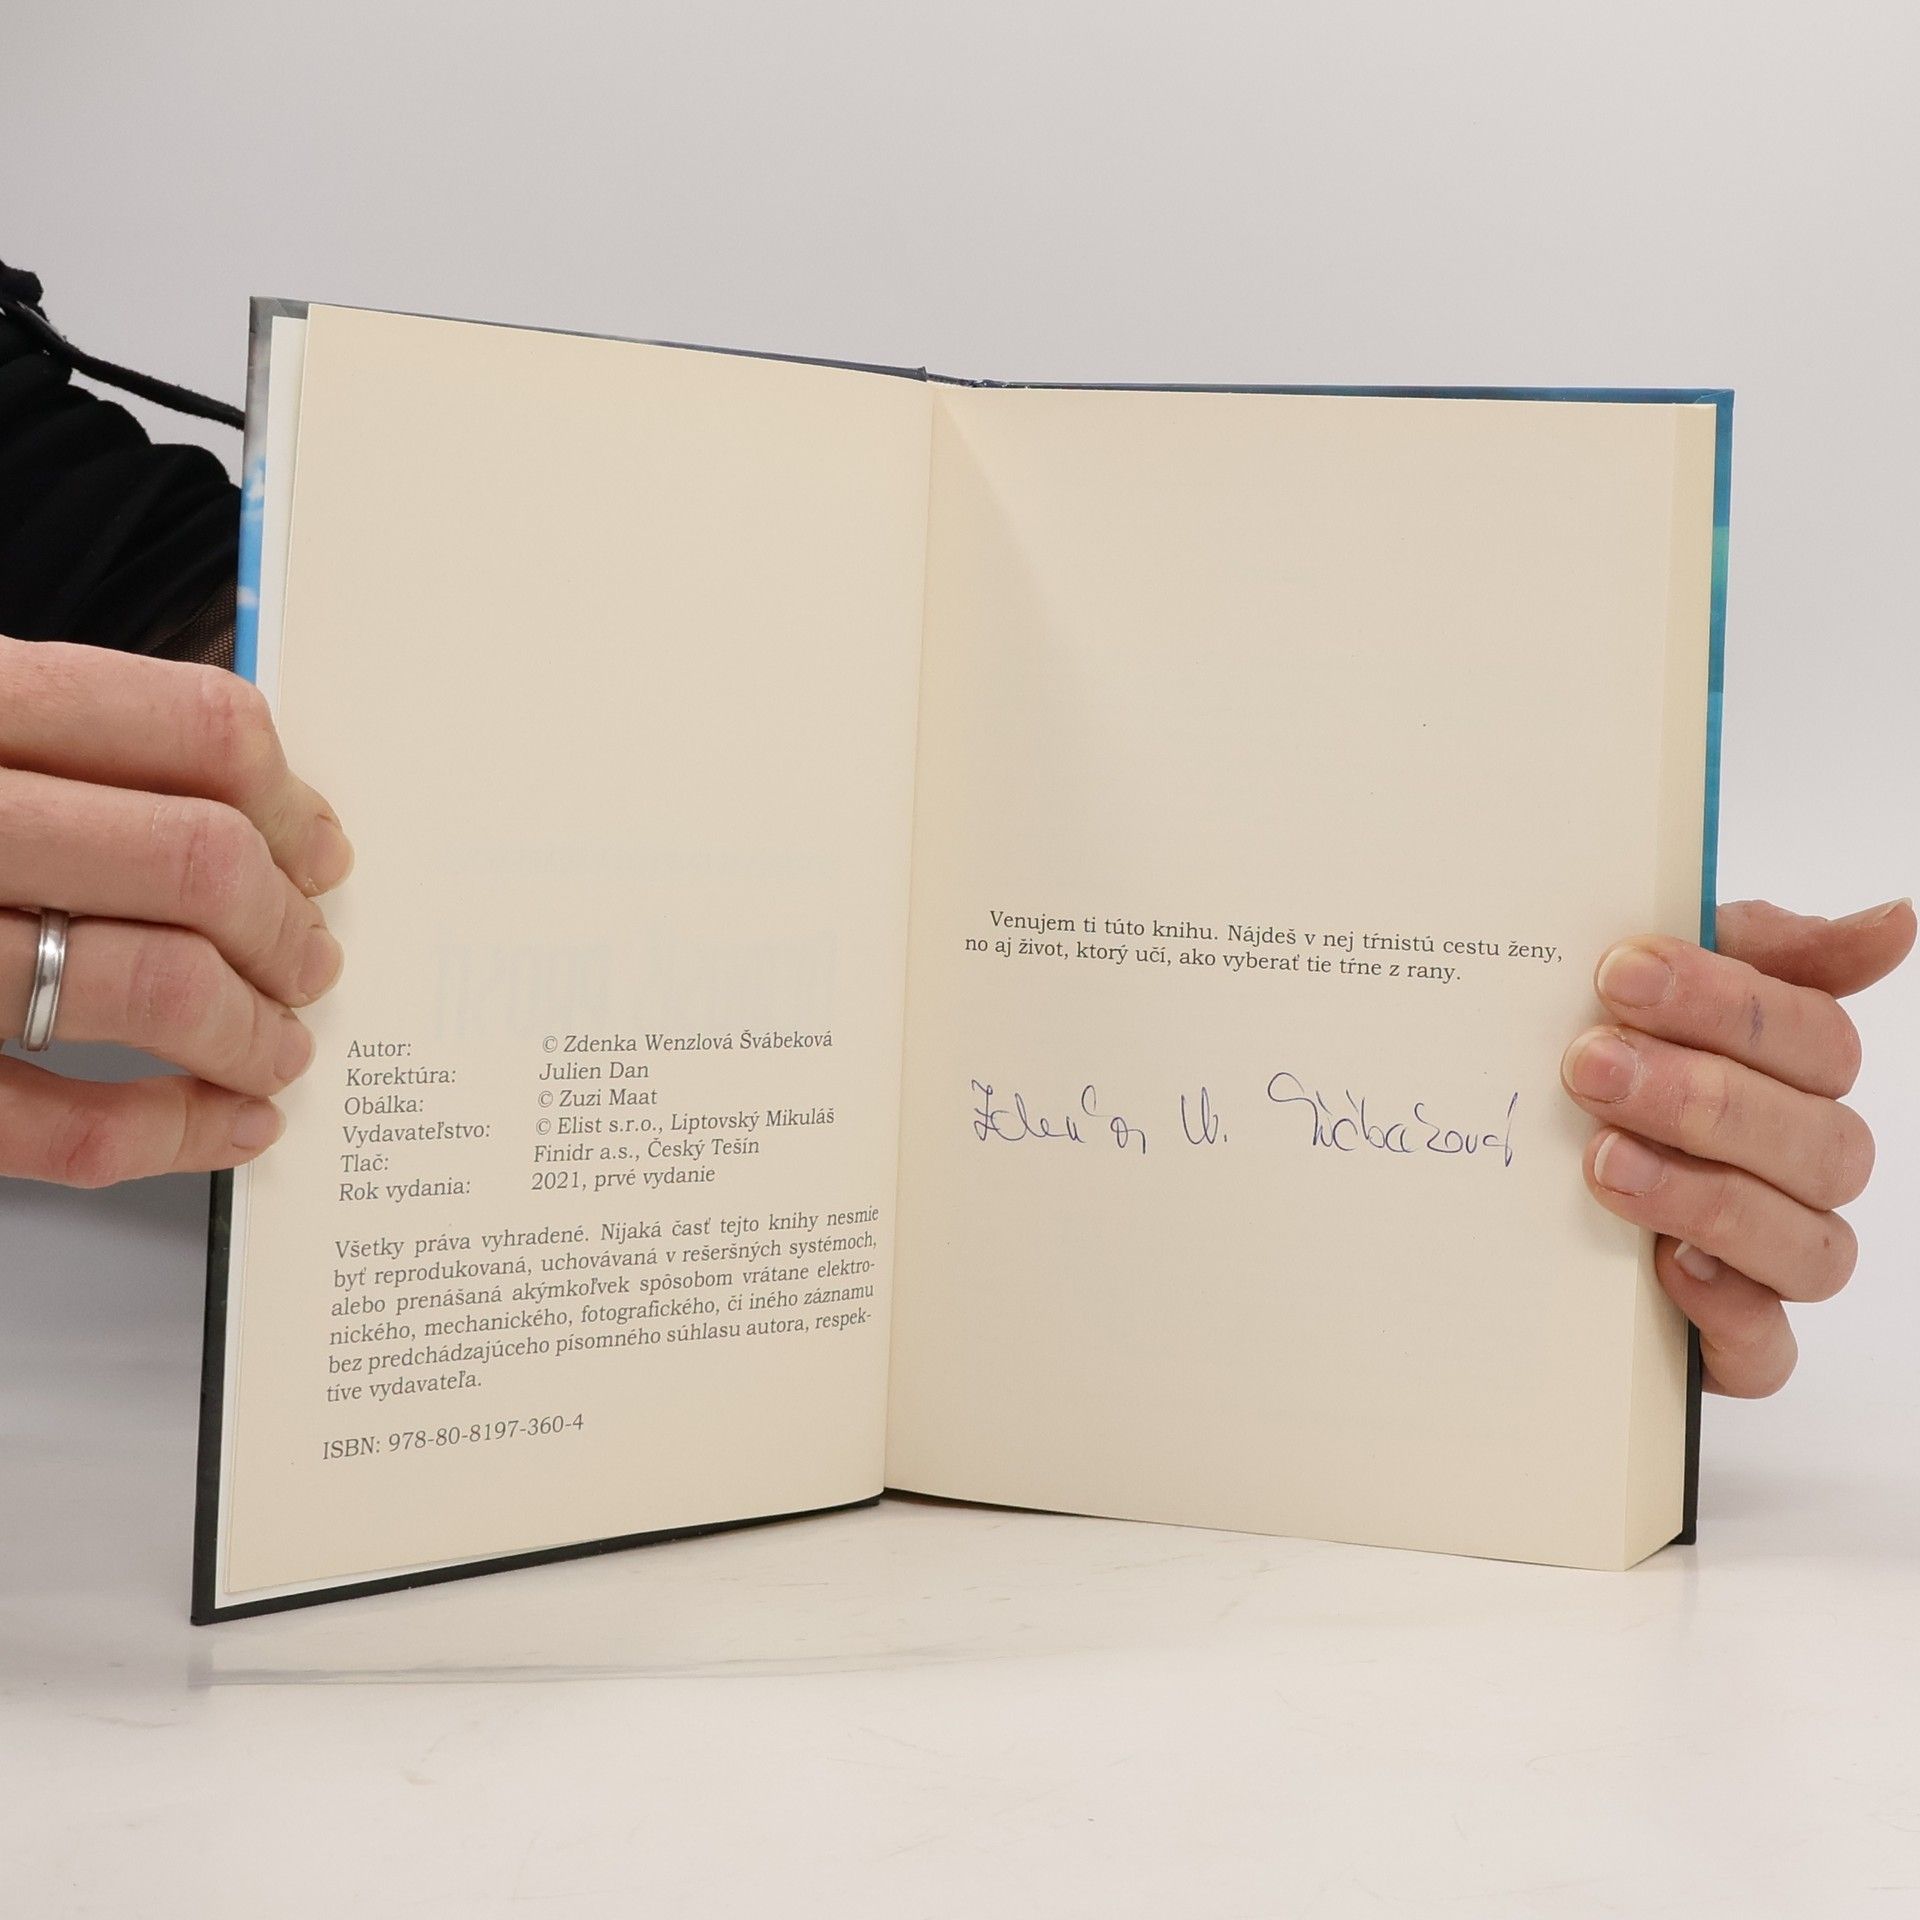 Autor: © Zdenka Wenzlová Švábeková
Korektúra: Julien Dan
Obálka: © Zuzi Maat
Vydavateľstvo: © Elist s.r.o., Liptovský Mikuláš
Tlač: Finidr a.s., Český Tešín
Rok vydania: 2021, prvé vydanie
Všetky práva vyhradené. Nijaká časť tejto knihy nesmie
byť reprodukovaná, uchovávaná v rešeršných systémoch,
alebo prenášaná akýmkoľvek spôsobom vrátane elektro-
nického, mechanického, fotografického, či iného záznamu
bez predchádzajúceho písomného súhlasu autora, respek-
tíve vydavateľa.
ISBN: 978-80-8197-360-4
Venujem ti túto knihu. Nájdeš v nej tŕnistú cestu ženy,
no aj život, ktorý učí, ako vyberať tie tŕne z rany.